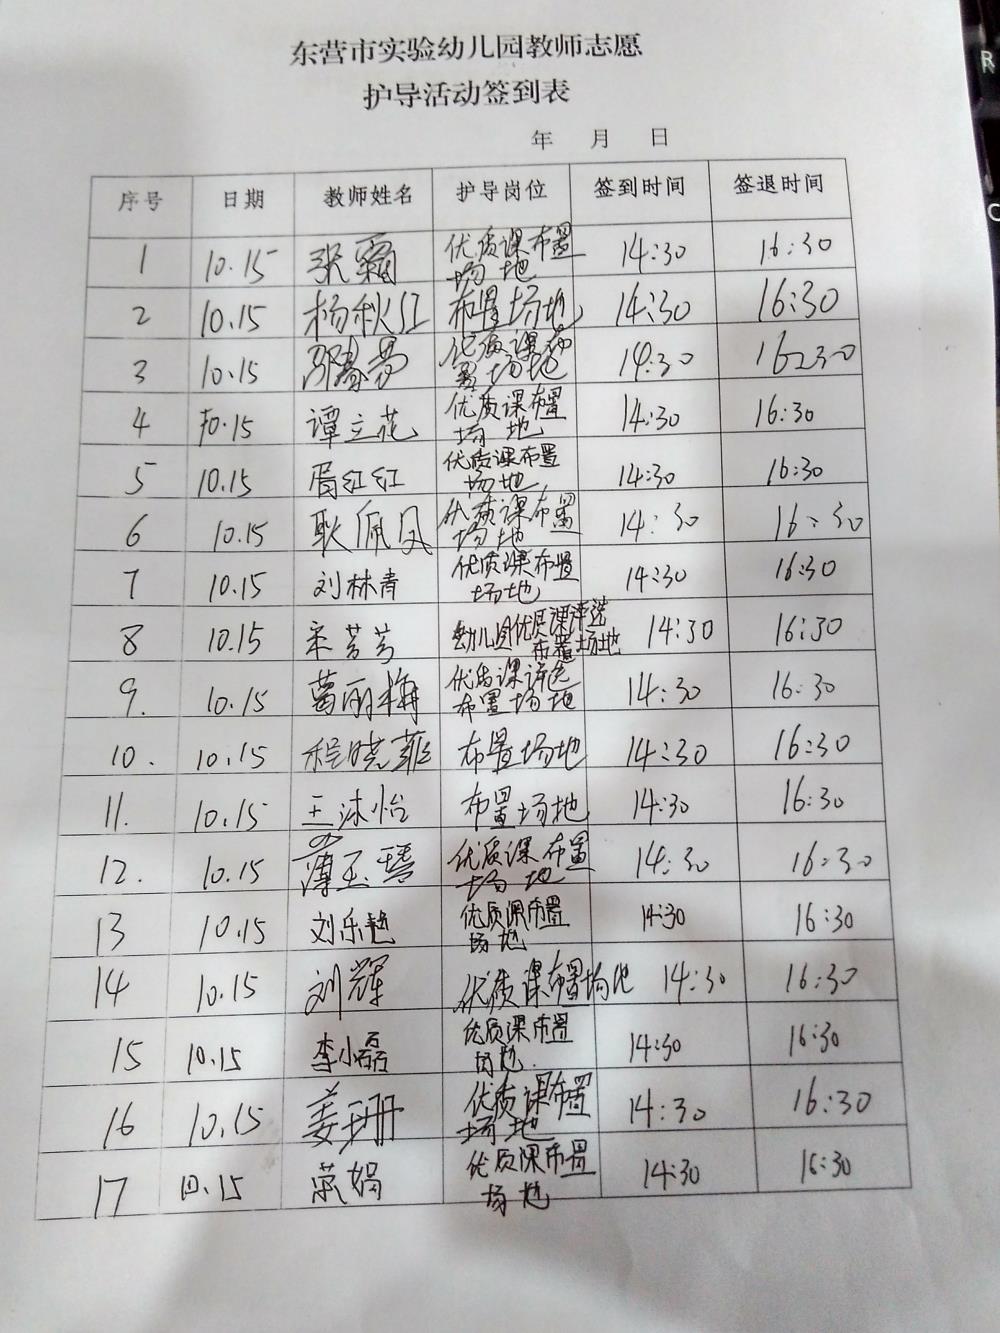 东营市实验幼儿园教师志愿
护导活动签到表
年 月 日
序号 日期 教师姓名 护导岗位 签到时间 签退时间
1 10.15 张霜 优质课布置场地 14:30 16:30
2 10.15 杨秋红 布置场地 14:30 16:30
3 10.15 优质课布置场地 14:30 16:30
4 10.15 谭立花 优质课布置场地 14:30 16:30
5 10.15 红红 优质课布置场地 14:30 16:30
6 10.15 耿佩凤 优质课布置场地 14:30 16:30
7 10.15 刘林青 优质课布置场地 14:30 16:30
8 10.15 宋芳芳 幼儿园优质课评选布置场地 14:30 16:30
9. 10.15 葛丽梅 优质课评选布置场地 14:30 16:30
10. 10.15 程晓菲 布置场地 14:30 16:30
11. 10.15 王沐怡 布置场地 14:30 16:30
12. 10.15 薄玉琴 优质课布置场地 14:30 16:30
13 10.15 刘乐艳 优质课布置场地 14:30 16:30
14 10.15 刘辉 优质课布置场地 14:30 16:30
15 10.15 李小磊 优质课布置场地 14:30 16:30
16 10.15 姜珊 优质课布置场地 14:30 16:30
17 10.15 娟 优质课布置场地 14:30 16:30